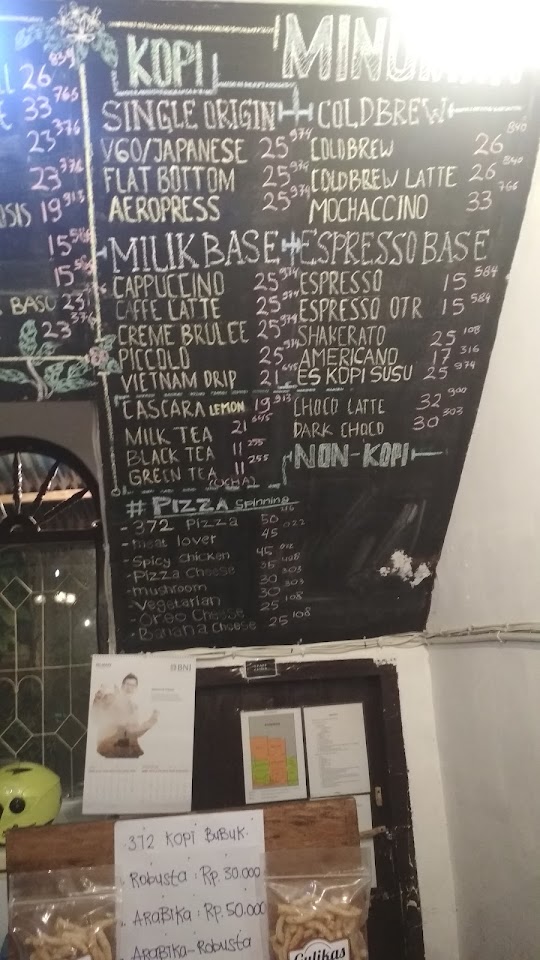 26 839
33 765
23 376
23 376
19 913
15
15
BASO 23
23 376
KOPI
SINGLE ORIGIN
V60/JAPANESE 25 974
FLAT BOTTOM 25 974
AEROPRESS 25 974
MILIK BASE
CAPPUCCINO 25 974
CAFFE LATTE 25 974
CREME BRULEE 25 974
PICCOLO 25 974
VIETNAM DRIP 21 645
CASCARA LEMON 19 913
MILK TEA 21 645
BLACK TEA 11 255
GREEN TEA 11 255
(OCHA)
COLDBREW
COLDBREW 26 840
COLDBREW LATTE 26 840
MOCHACCINO 33 766
ESPRESSO BASE
ESPRESSO 15 584
ESPRESSO OTR 15 584
SHAKERATO 25 108
AMERICANO 17 316
ES KOPI SUSU 25 974
CHOCO LATTE 32 900
DARK CHOCO 30 303
NON-KOPI
#PIZZA Spinning
- 372 Pizza 50
- meat lover 45 022
- Spicy chicken 45
- Pizza Cheese 35
- mushroom 30 303
- Vegetarian 30 303
- Oreo Cheese 25 108
- Banana Cheese 25 108
BNI
372 KOPI BUBUK
Robusta : Rp. 30.000
ARABIKA : Rp. 50.000
ARABIKA - Robusta
Gulikas